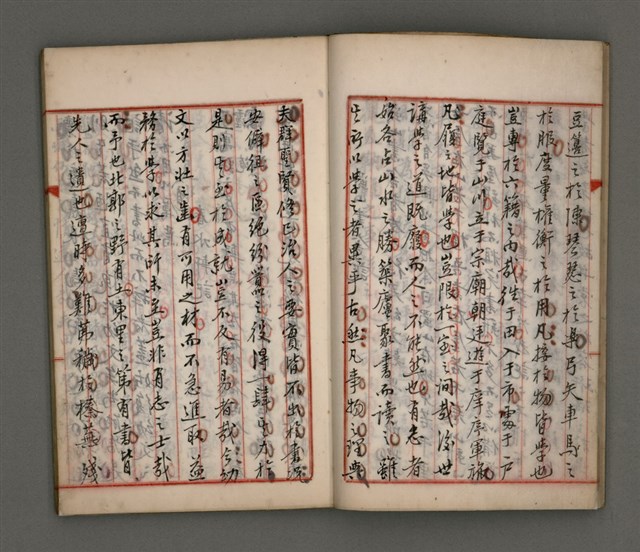 豆籩之於陳琴瑟之於樂弓矢車馬之
於服度量權衡之於用凡接於物皆學也
豈專於六籍之內哉徃于田入于市處于戶
庭覽于山川立于宗廟朝廷遊于庠序軍旅
凡履之地皆學也豈限於一室之間哉後世
講學之道旣廢而人之不能然也有志者
始各占山水之勝築廬聚書而讀之雖
其所以學之者異乎古然凡事物之理與
夫群聖賢修己治人之要實皆不出於書況
安僻之區絕紛囂之役得一肆其力於
是則其至於成就豈不又有易者哉今幼
文以方壯之齒有可用之材而不急進取益
務於學以求其所未至豈非有志之士哉
而予也北郭之野有土東里之第有書皆
先人之遺也遭時多難第於榛蕪殘